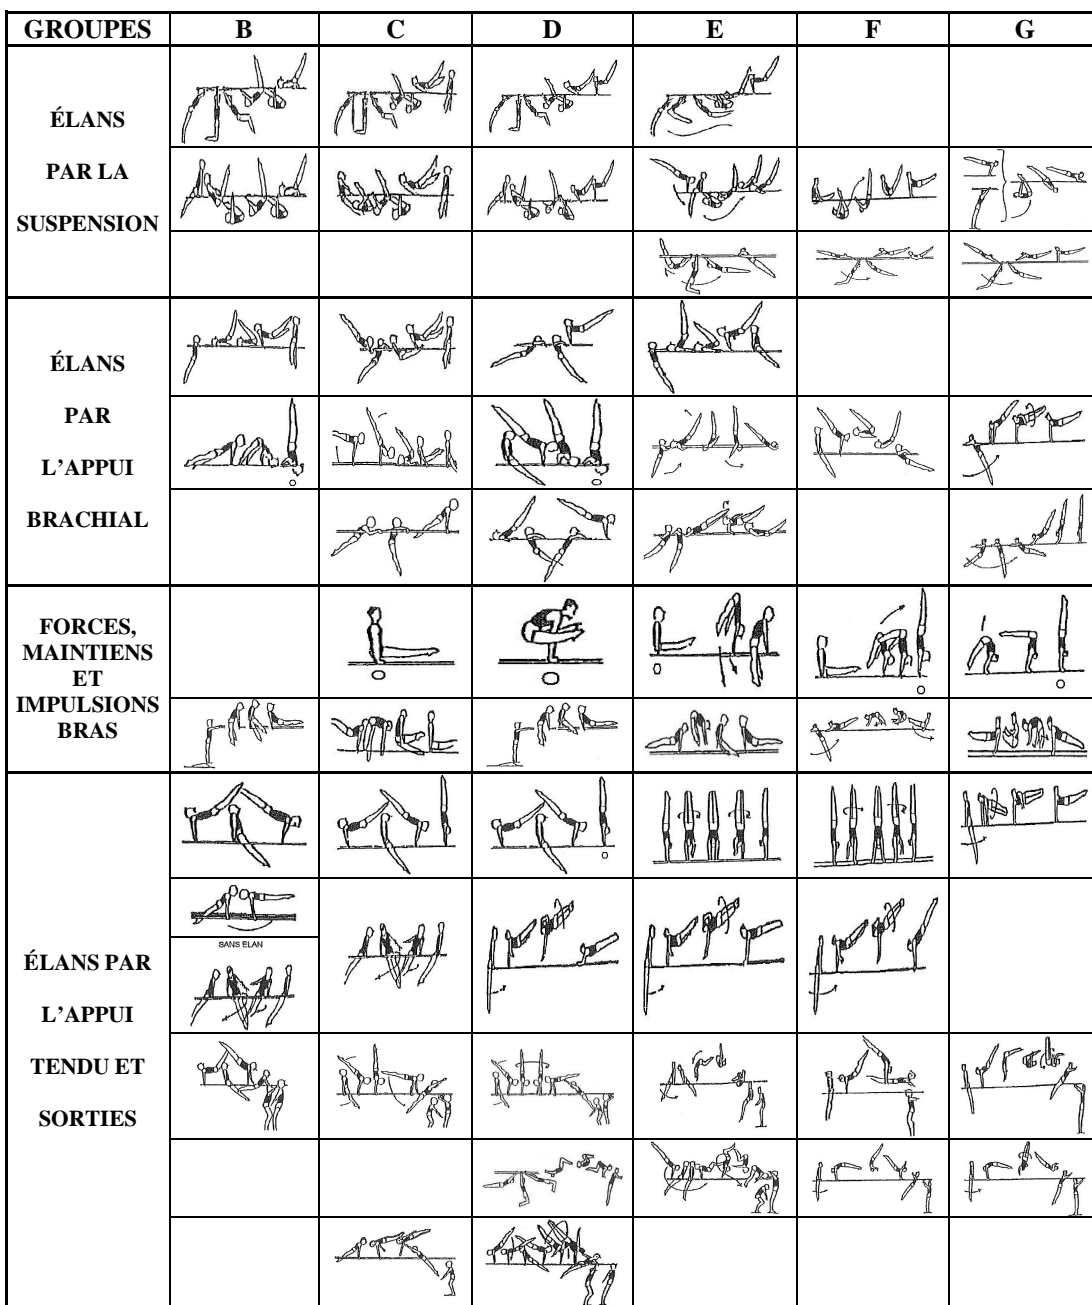 GROUPES B C D E F G
ÉLANS
PAR LA
SUSPENSION
ÉLANS
PAR
L'APPUI
BRACHIAL
FORCES,
MAINTIENS
ET
IMPULSIONS
BRAS
SANS ELAN
ÉLANS PAR
L'APPUI
TENDU ET
SORTIES